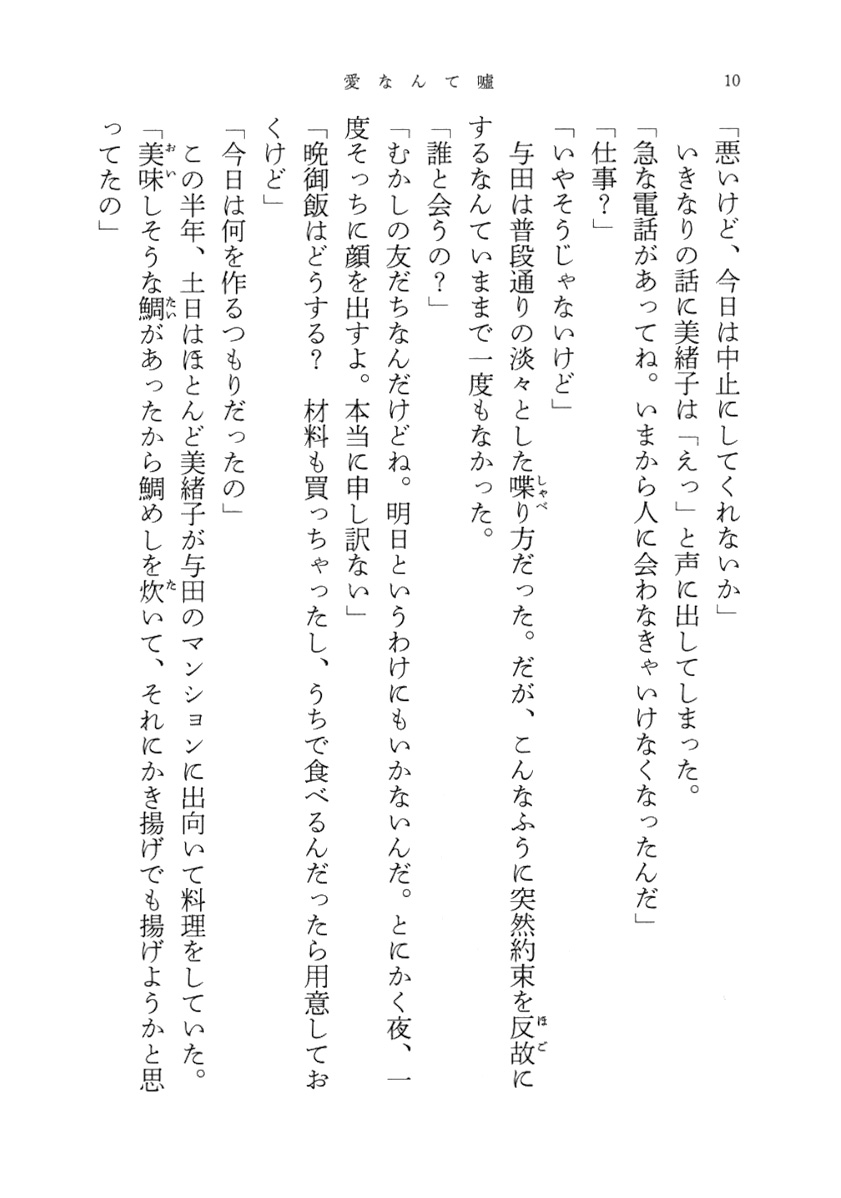 10
愛なんて嘘
「悪いけど、今日は中止にしてくれないか」
いきなりの話に美緒子は「えっ」と声に出してしまった。
「急な電話があってね。いまから人に会わなきゃいけなくなったんだ」
「仕事？」
「いやそうじゃないけど」
与田は普段通りの淡々とした喋り方だった。だが、こんなふうに突然約束を反故に
するなんていままで一度もなかった。
「誰と会うの？」
「むかしの友だちなんだけどね。明日というわけにもいかないんだ。とにかく夜、一
度そっちに顔を出すよ。本当に申し訳ない」
「晩御飯はどうする？　材料も買っちゃったし、うちで食べるんだったら用意してお
くけど」
「今日は何を作るつもりだったの」
この半年、土日はほとんど美緒子が与田のマンションに出向いて料理をしていた。
「美味しそうな鯛があったから鯛めしを炊いて、それにかき揚げでも揚げようかと思
ってたの」